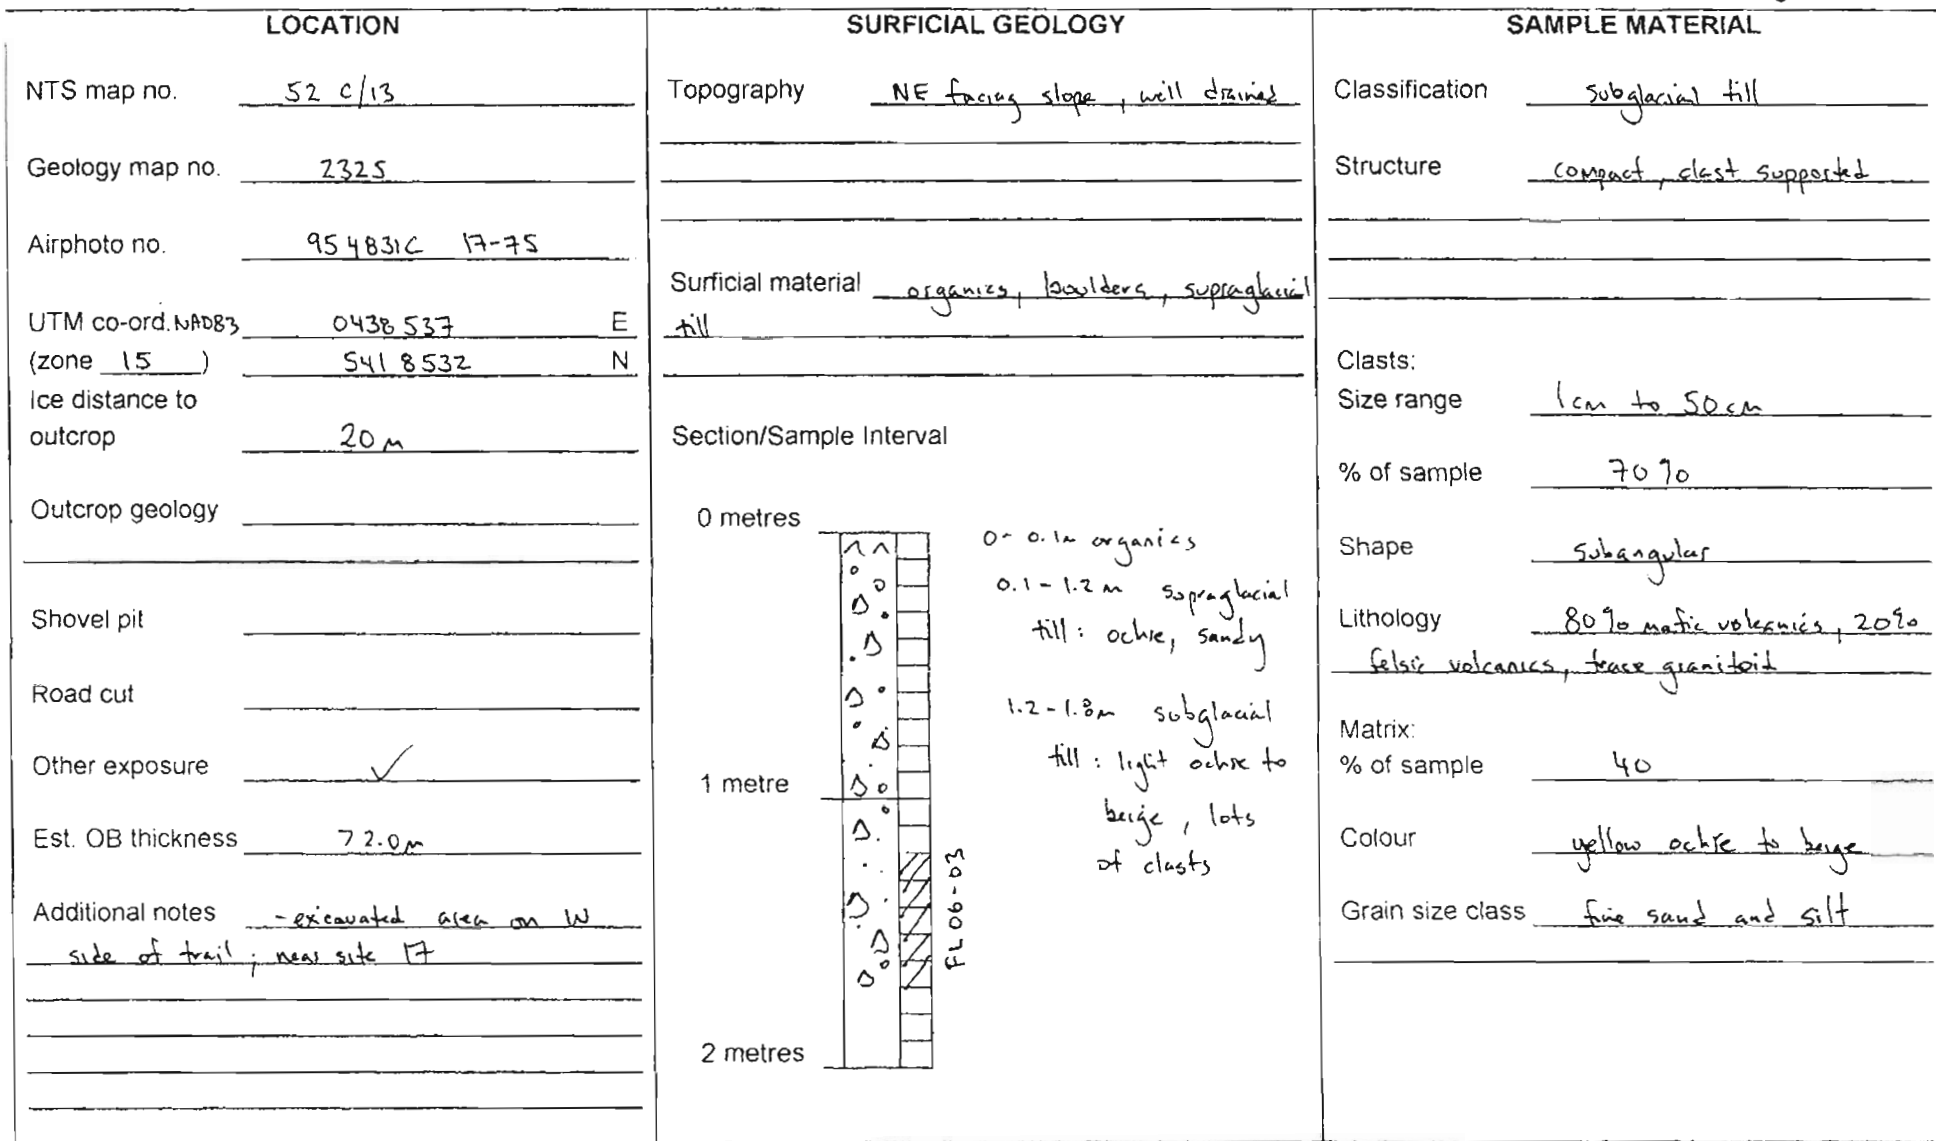 LOCATION
NTS map no. 52 C/13
Geology map no. 2325
Airphoto no. 954831C 17-75
UTM co-ord. NAD83 0438537 E
(zone 15 ) 5418532 N
Ice distance to
outcrop 20 m
Outcrop geology
Shovel pit
Road cut
Other exposure ✓
Est. OB thickness >2.0m
Additional notes -excavated area on W
side of trail; near site 17
SURFICIAL GEOLOGY
Topography NE facing slope, well drained
Surficial material organics, boulders, supraglacial
till
Section/Sample Interval
0 metres
1 metre
2 metres
0-0.1m organics
0.1-1.2 m supraglacial
till: ochre, sandy
1.2-1.8m subglacial
till: light ochre to
beige, lots
of clasts
FL06-03
SAMPLE MATERIAL
Classification subglacial till
Structure compact, clast supported
Clasts:
Size range 1cm to 50cm
% of sample 70%
Shape subangular
Lithology 80% mafic volcanics, 20%
felsic volcanics, trace granitoid
Matrix:
% of sample 40
Colour yellow ochre to beige
Grain size class fine sand and silt